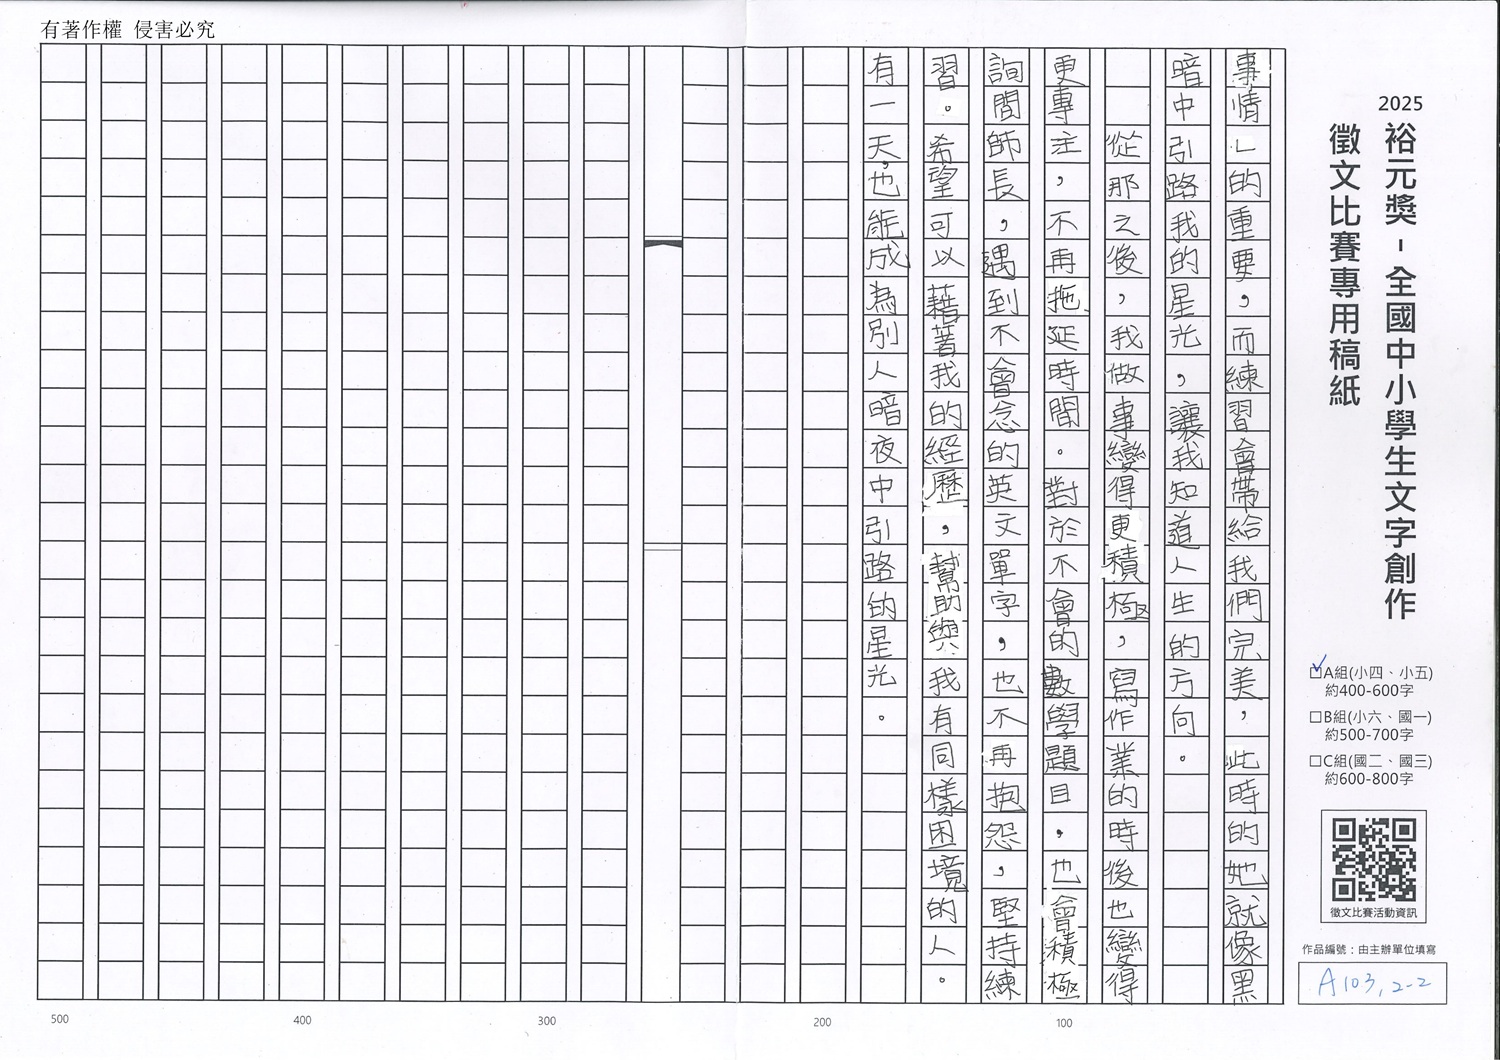 有著作權 侵害必究
2025
裕元獎-全國中小學生文字創作
徵文比賽專用稿紙
□A組(小四、小五)
約400-600字
□B組(小六、國一)
約500-700字
□C組(國二、國三)
約600-800字
徵文比賽活動資訊
作品編號：由主辦單位填寫
A103,2-2
事情」的重要，而練習會帶給我們完美，此時的她就像黑
暗中引路我的星光，讓我知道人生的方向。
從那之後，我做事變得更積極，寫作業的時後也變得
更專注，不再拖延時間。對於不會的數學題目，也會積極
詢問師長，遇到不會念的英文單字，也不再抱怨，堅持練
習。希望可以藉著我的經歷，幫助與我有同樣困境的人。
有一天，也能成為別人暗夜中引路的星光。
500
400
300
200
100